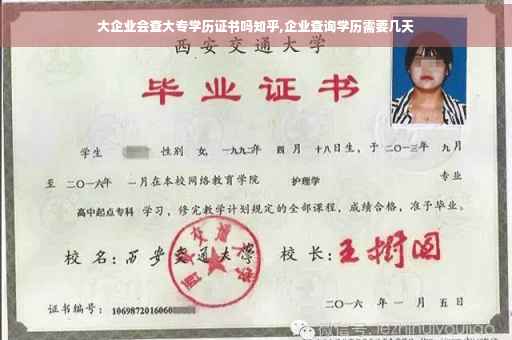 大企业会查大专学历证书吗知乎,企业查询学历需要几天
西安交通大学
毕业证书
学生 性别 女, 一九九二年 四月 十八日生, 于二〇一三年 九月
至 二〇一六年 一月在本校网络教育学院 护理学 专业
高中起点专科 学习, 修完教学计划规定的全部课程, 成绩合格, 准予毕业。
校名: 西安交通大学 校长: 王树国
西安交通大学
证书编号: 1069872016060
二〇一六年 一月五日
微信号: jezhinuiyoujiao